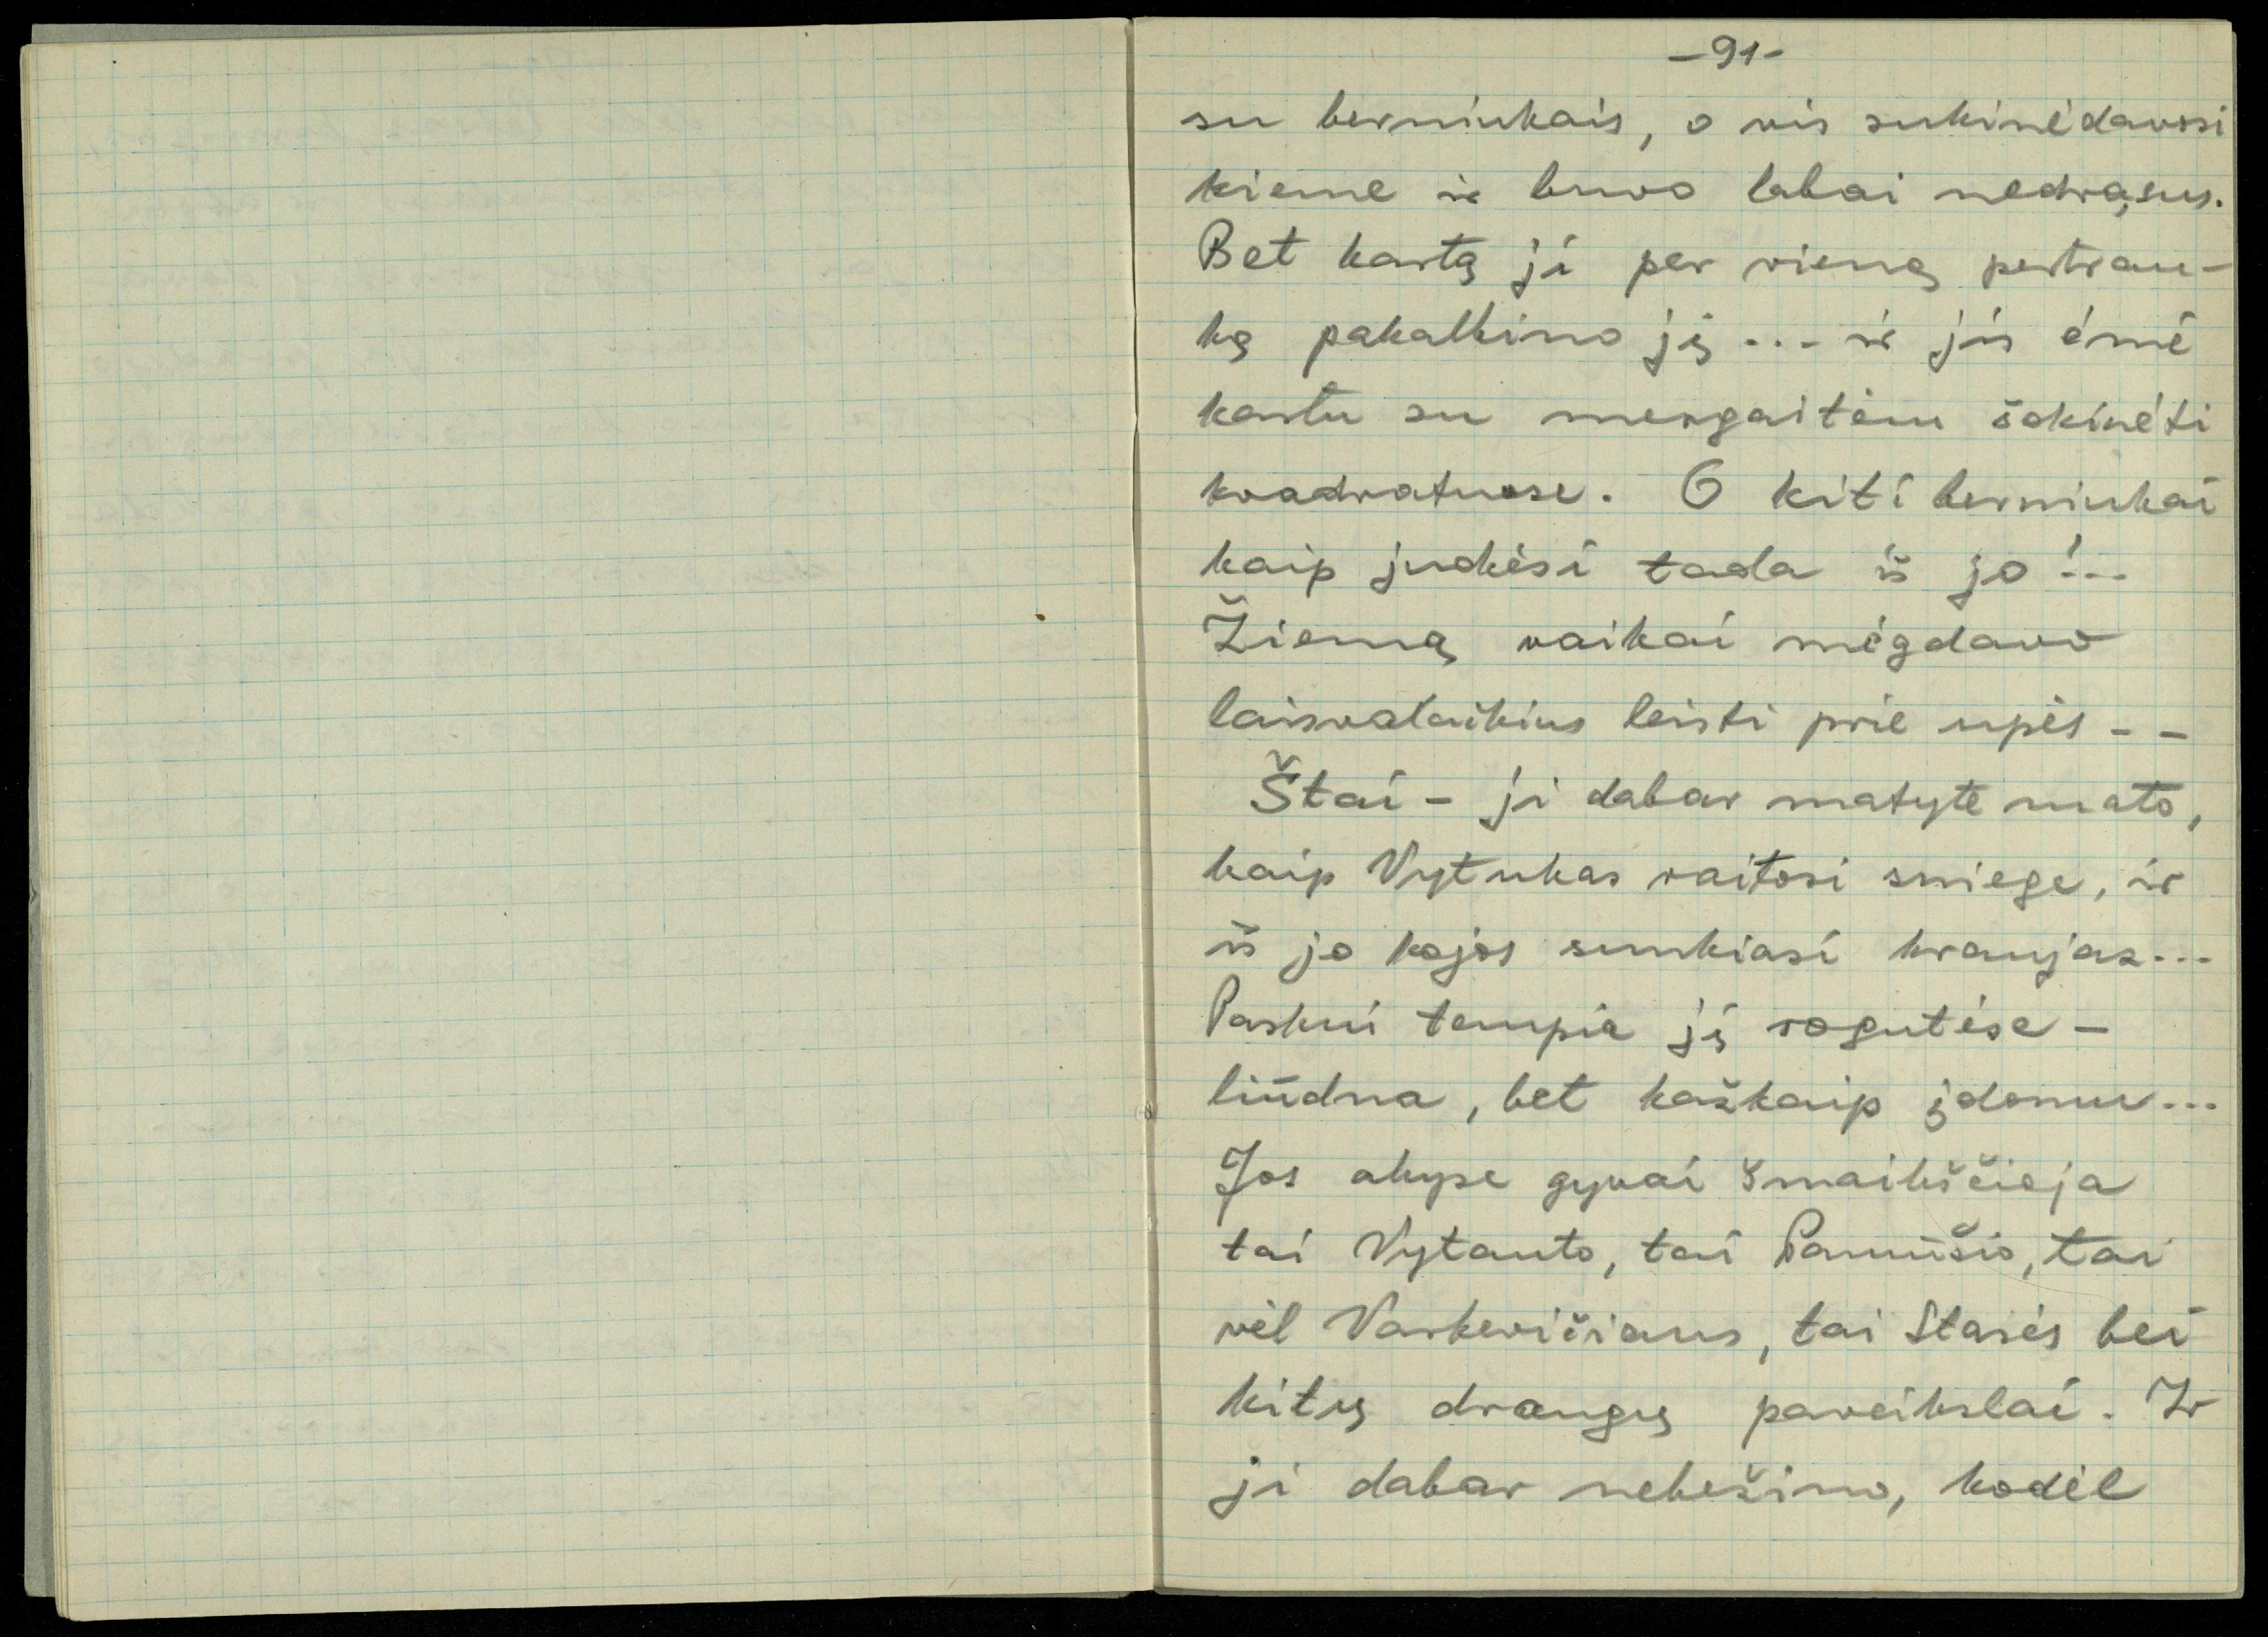 -91-
su berniukais, o vis sukinėdavosi
kieme ir buvo labai nedrąsus.
Bet kartą ji per vieną pertrau-
ką pakalbino jį... ir jis ėmė
kartu su mergaitėm šokinėti
kvadratuose. O kiti berniukai
kaip juokėsi tada iš jo!..
Žiemą vaikai mėgdavo
laisvalaikius leisti prie upės - -
Štai - ji dabar matyte mato,
kaip Vytukas raitosi sniege, ir
iš jo kojos sunkiasi kraujas...
Paskui tempia jį rogutėse -
liūdna, bet kažkaip įdomu...
Jos akyse gyvai šmaikščioja
tai Vytauto, tai Pamūšio, tai
vėl Varkevičiaus, tai Stasės bei
kitų draugų paveikslai. Ir
ji dabar nebežino, kodėl